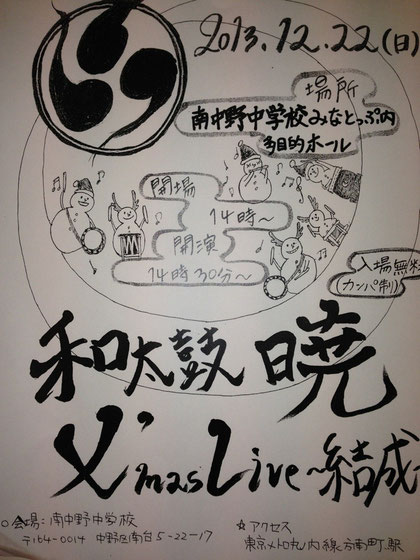 2013.12.22(日)
場所
南中野中学校みなとっぷ内
多目的ホール
開場
14時~
開演
14時30分~
入場無料
カンパ制
和太鼓 暁
X'mas Live~結成
○会場:南中野中学校
〒164-0014 中野区南台5-22-17
☆アクセス
東京メトロ丸ノ内線 方南町駅